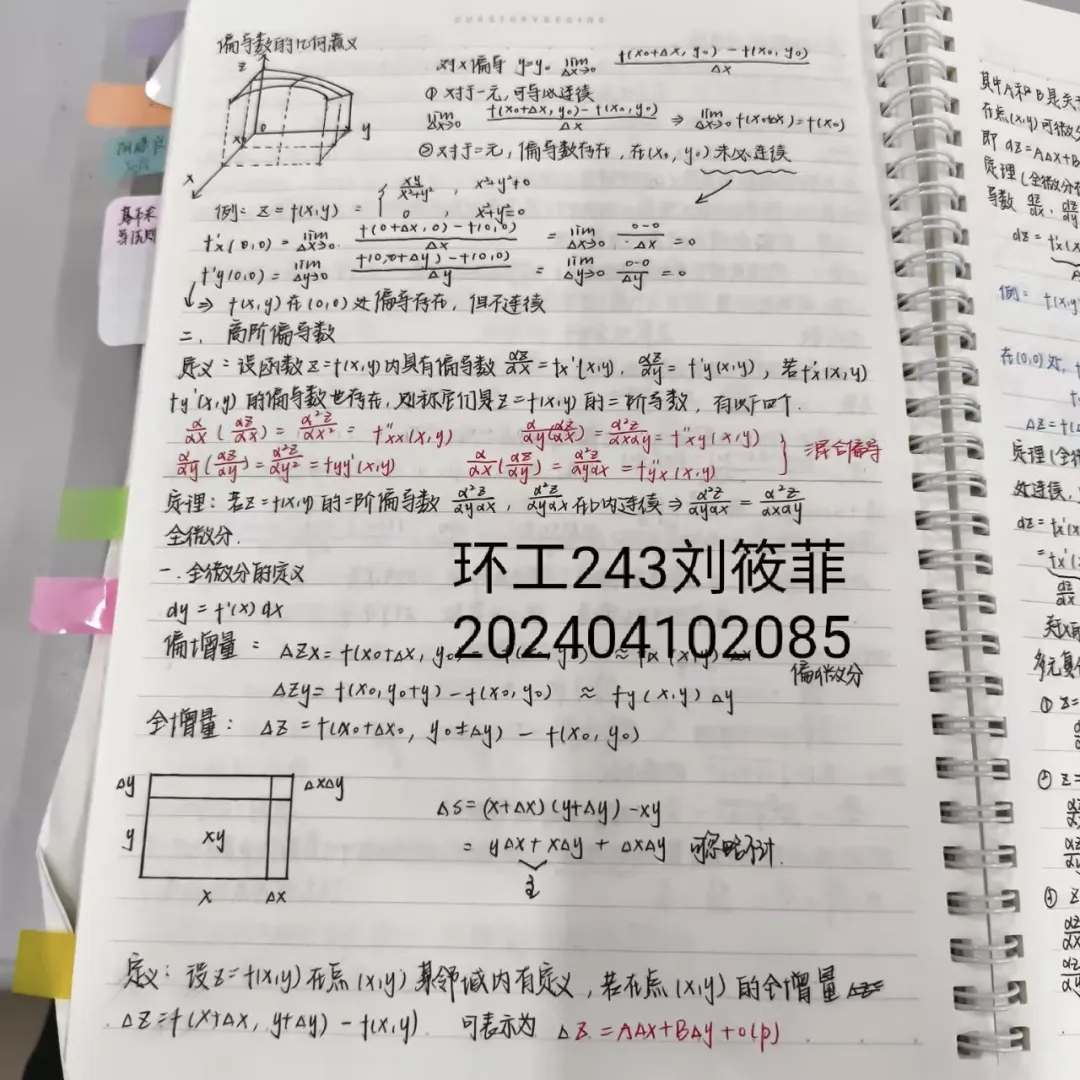 偏导数的几何意义
对x偏导 y=y₀ lim Δx→0 f(x₀+Δx, y₀) - f(x₀, y₀) / Δx
① 对于一元,可导必连续
lim Δx→0 f(x₀+Δx, y₀) - f(x₀, y₀) / Δx ⇒ lim Δx→0 f(x₀+Δx) = f(x₀)
② 对于二元,偏导数存在,在(x₀, y₀)未必连续
z
y
x
x
0
例: z = f(x,y) = { xy / x²+y² , x²+y²≠0
0 , x²+y²=0
f'x(0,0) = lim Δx→0 f(0+Δx, 0) - f(0,0) / Δx = lim Δx→0 0-0 / Δx = 0
f'y(0,0) = lim Δy→0 f(0,0+Δy) - f(0,0) / Δy = lim Δy→0 0-0 / Δy = 0
⇒ f(x,y)在(0,0)处偏导存在,但不连续
二、高阶偏导数
定义:设函数z=f(x,y)内具有偏导数 αz/αx = fx'(x,y), αz/αy = f'y(x,y),若f'x(x,y)
fy'(x,y)的偏导数也存在,则称它们是z=f(x,y)的二阶导数,有以下四个.
α/αx (αz/αx) = α²z/αx² = f''xx(x,y) α/αy (αz/αx) = α²z/αxαy = f''xy(x,y)
α/αy (αz/αy) = α²z/αy² = fyy''(x,y) α/αx (αz/αy) = α²z/αyαx = f''yx(x,y) } 混合偏导
定理:若z=f(x,y)的二阶偏导数 α²z/αyαx, α²z/αyαx在D内连续 ⇒ α²z/αyαx = α²z/αxαy
全微分.
一.全微分的定义
dy = f'(x)dx
偏增量: Δzx = f(x₀+Δx, y₀)
偏微分
Δzy = f(x₀, y₀+y) - f(x₀, y₀) ≈ fy(x,y)Δy
全增量: Δz = f(x₀+Δx₀, y₀+Δy) - f(x₀, y₀)
环工243刘筱菲
202404102085
Δy ΔxΔy
y xy
x Δx
Δs = (x+Δx)(y+Δy) - xy
= yΔx + xΔy + ΔxΔy 可忽略不计.
定义:设z=f(x,y)在点(x,y)某邻域内有定义,若在点(x,y)的全增量
Δz=f(x+Δx, y+Δy) - f(x,y) 可表示为 Δz = AΔx+BΔy+o(ρ)
其中A和B是关于
在点(x,y)可微分
即 dz=AΔx+B
定理(全微分
导数 αz/αx, αz/αy
dz = f'x(x
例: f(x,y
在(0,0)处,
Δz=f(
定理(全
处连续,
dz = fx'(x
= fx'(x
多元复
① z=
② z=
③ z